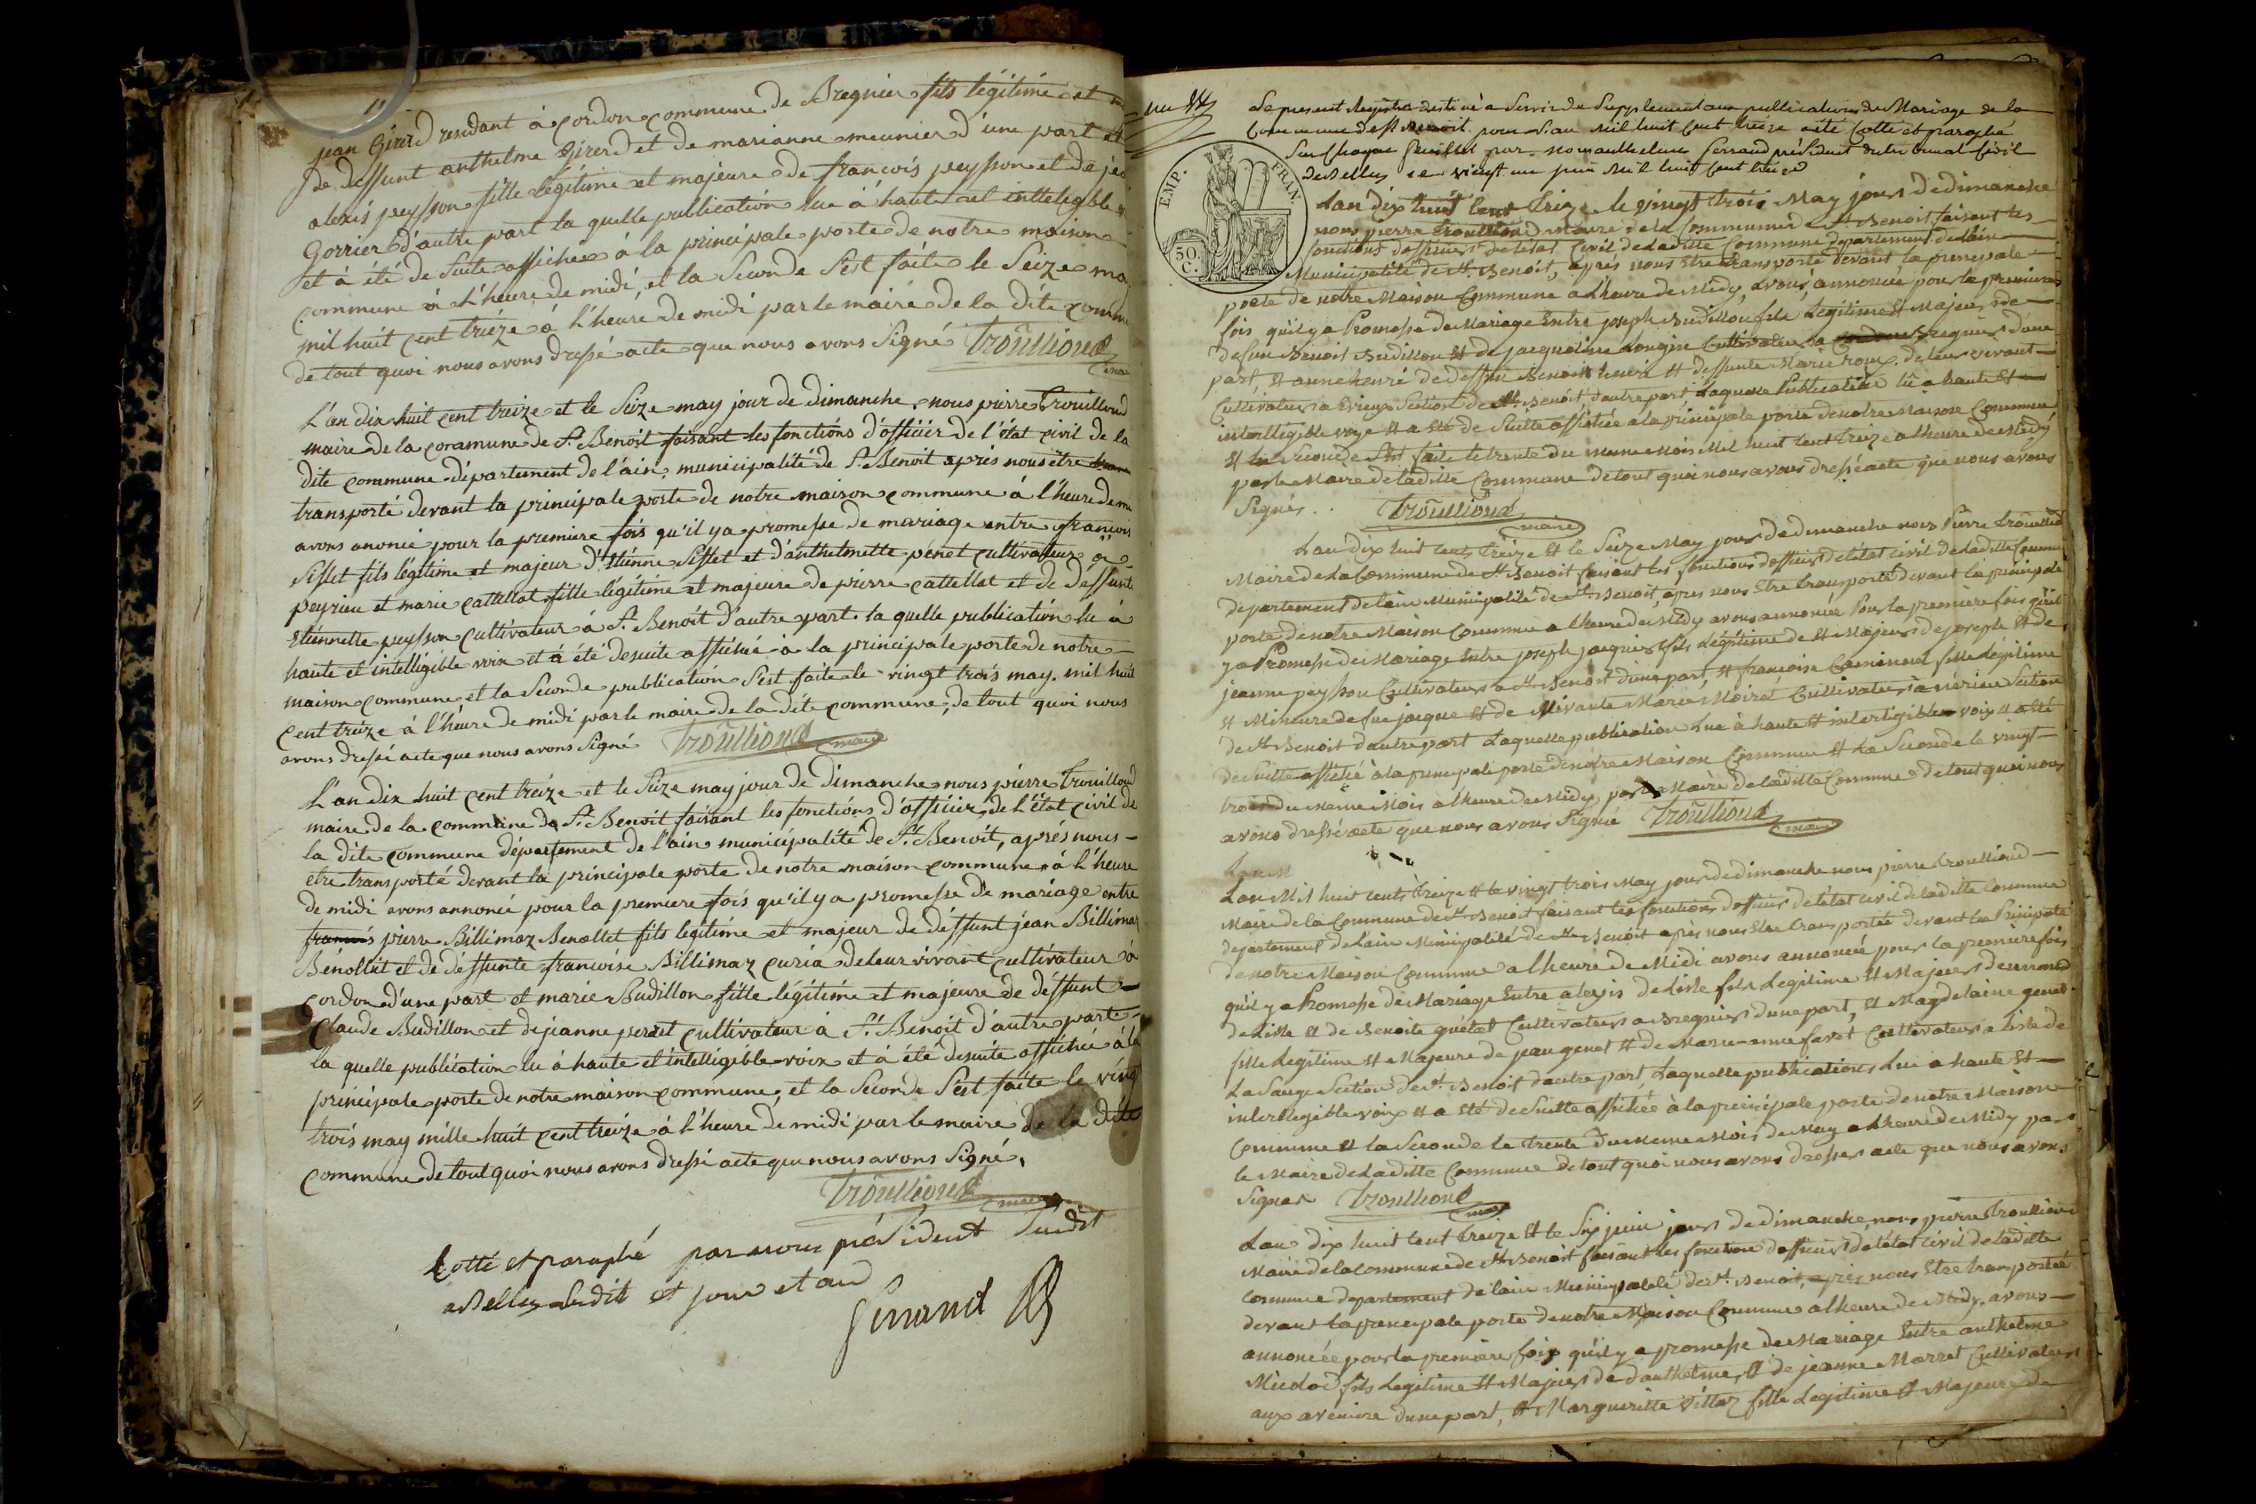 jean Girerd residant à cordon commune de Bregnier fils légitime et
de deffunt anthelme Girerd et de marianne meunier d'une part et
alexis peysson fille légitime et majeure de francois peysson et de
Gorrier d'autre part la quelle publication lue à haute et intteligible
et à été de suite affichée à la principale porte de notre maison
commune à l'heure de midi, et la seconde s'est faite le Seize
mil huit cent treize à l'heure de midi par le maire de la dite
de tout quoi nous avons dressé acte que nous avons Signé Trouilloud
L'an dix huit cent treize et le Seize may jour de dimanche, nous pierre Trouilloud
maire de la commune de St. Benoit faisant les fonctions d'officier de l'état civil de la
dite commune département de l'ain, municipalité de St. Benoit après nous être
transporté devant la principale porte de notre maison commune à l'heure de
avons anoncé pour la premiere fois qu'il ya promesse de mariage entre francois
Siflet fils légitime et majeur d'Etienne Siflet et d'anthelmette penet cultivateur à
peyrieu et marie cattillat fille légitime et majeure de pierre cattellat et de deffunte
Etiennette peysson cultivateur à St. Benoit d'autre part. la quelle publication lu à
haute et intelligible voix et à été desuite affiché à la principale porte de notre
maison commune, et la Seconde publication s'est faite le vingt trois may. mil huit
cent treize à l'heure de midi par le maire de la dite commune, de tout quoi nous
avons dressé acte que nous avons signé Trouilloud maire
L'an dix huit cent treize et le Seize may jour de dimanche nous pierre Trouilloud
maire de la commune de St. Benoit faisant les fonctions d'officier de l'état civil de
la dite commune département de l'ain municipalité de St. Benoit, après nous
être transporté devant la principale porte de notre maison commune à l'heure
de midi avons annoncé pour la premiere fois qu'il y a promesse de mariage entre
francois pierre Billimaz Benollet fils legitime et majeur de deffunt jean Billimaz
Benollet et de deffunte francoise Billimaz curia de leur vivant cultivateur à
cordon d'une part et marie Budillon fille légitime et majeure de deffunt
Claude Budillon et de jeanne cultivateur à St. Benoit d'autre part
la quelle publication lu à haute et intelligible voix et à été desuite affiché à la
principale porte de notre maison commune, et la Seconde s'est faite le vingt
trois may mille huit cent treize à l'heure de midi par le maire de la dite
commune de tout quoi nous avons dressé acte que nous avons Signé.
Trouilloud maire
Cotté et paraphé par nous président Susdit
a Belley Ledit jour et an
Le present Registre destiné a Servir de Supplement aux publications de Mariage de la
Commune de St Benoit pour l'an mil huit Cent treize a été Cotté et paraphé
Sur Chaque feuillet par nous président du tribunal Civil
de Belley ce vingt un mil huit Cent treize
EMP. FRAN.
50. C.
Lan dix huit Cent treize le vingt trois May jour de dimanche
nous pierre trouilloud Maire de la Commune de St Benoit faisant les
fonctions dofficier de létat Civil de Laditte Commune departement de lain
Municipalité de St. Benoit, après nous Etre transporté devant la principale
porte de notre Maison Commune a Lheure de Midy, avons, annoncé pour la premiere
fois quil y a Promesse de Mariage Entre joseph Budillon fils Legitime et Majeur de
defun Benoit Budillon et de jacqueline Longin Cultivateur a Bregnier dune
part, et anne henri de deffun Benoit henri et deffunte Marie roux de leur vivant
Cultivateurs a Section de St. Benoit dautre part Laquelle Publication lu a haute et
intelligible voye et a été de Suitte affichée a la principale porte de notre Maison Commune
et la seconde sest faite le trente du meme Mois Mil huit cent treize a lheure de Midy
par le Maire de laditte Commune de tout quoi nous avons dressé acte que nous avons
Signés.. Trouilloud
maire
Lan dix huit cent treize et le Seize May jour de dimanche nous Pierre trouilloud
Maire de la Commune de St Benoit faisant les fonctions dofficier de létat civil de Laditte Commune
departement de lain Municipalité de St. Benoit, apres nous Etre transporté devant la principale
porte de notre Maison Commune a lheure de Midy avons annoncée Pour la premiere fois quil
y a Promesse de Mariage Entre joseph jacquier fils Légitime et Majeur de joseph et de
jeanne peysson Cultivateur a St. Benoit dune part, et francoise fille Légitime
et Mineure de feu jacque et de Vivante Marie Moiret Cultivateur à Section
de St Benoit dautre part Laquelle publication lue à haute et intelligible voix et a été
de Suitte affiché à la principale porte de nôtre Maison Commune et La Seconde le vingt
trois du Même Mois à lheure de Midy, par le Maire de laditte Commune de tout quoi nous
avons dressé acte que nous avons Signé Trouilloud maire
Lan M
Lan Mil huit cent treize et le vingt trois May jour de dimanche nous pierre trouilloud
Maire de la Commune de St Benoit faisant les fonctions dofficier de létat civil de laditte Commune
departement de Lain Municipalité de St. Benoit après nous Etre transportée devant La Principale
de notre Maison Commune a lheure de Midi avons annoncée pour la premiere fois
quil y a Promesse de Mariage Entre alexis de Lisle fils Legitime et Majeur
de Lisle et de Benoite quétat Cultivateur a Bregnier dune part, et Magdelaine genet
fille Legitime et Majeure de jean genet et de Marie-anne favet Cultivateur a Liste de
La Sauge Section de St. Benoit dautre part, Laquelle publication Lue a haute et
intelligible voix et a été de Suitte affichée à la principale porte de notre Maison
Commune et la Seconde le trente du Meme Mois de May a Lheure de Midy par
le Maire de laditte Commune de tout quoi nous avons dresser acte que nous avons
Signer Trouilloud
Lan dix huit cent treize et le Six juin jour de dimanche, nous pierre trouilloud
Maire de la Commune de St Benoit faisant les fonctions dofficier de létat civil de laditte
Commune departement de lain Municipalité de St. Benoit, après nous Etre transporté
devant la principale porte de notre Maison Commune a lheure de Midy avons
annoncée pour la premiere fois quil y a promesse de Mariage Entre anthelme
Miedod fils Legitime et Majeur danthelme, et de jeanne Marret Cultivateur
aux avenieres dune part, et Margueritte Villaz fille Legitime et Majeure de